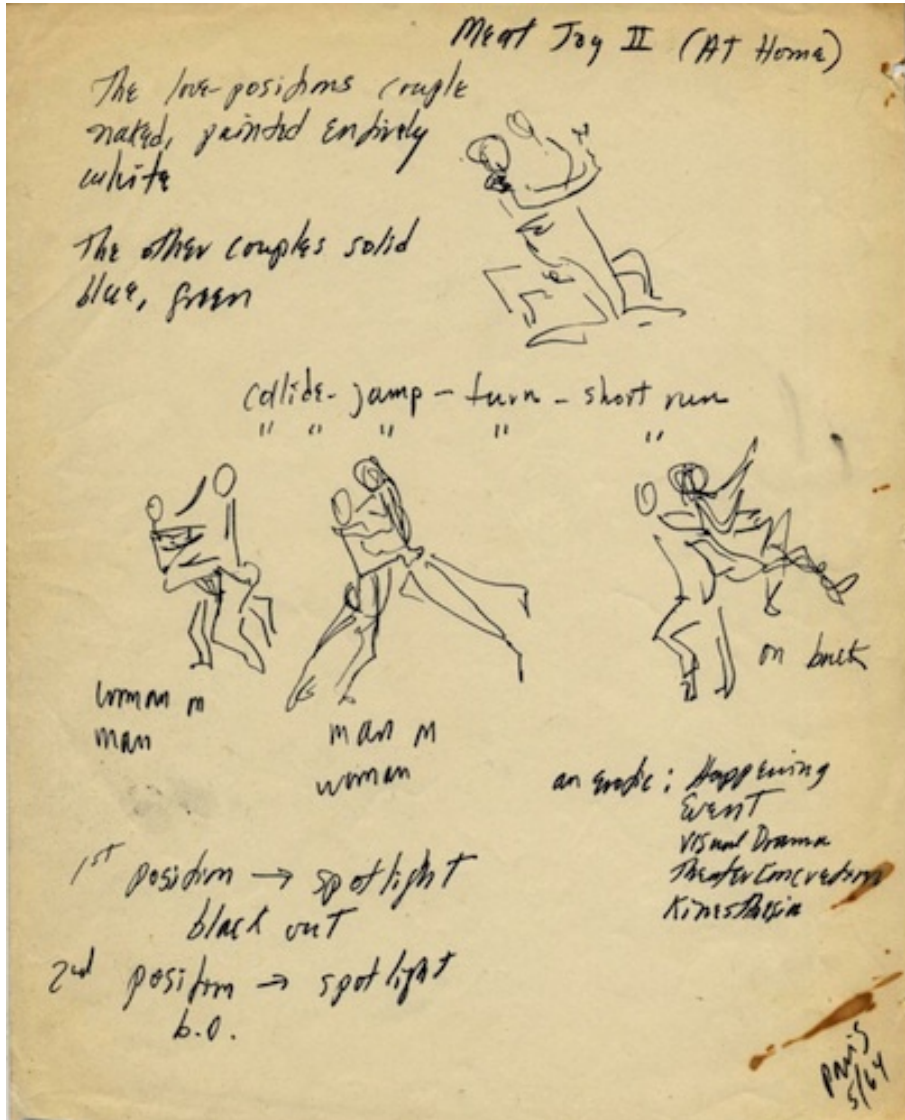 Meat Joy II (At Home)
The love-positions couple
naked, painted entirely
white
The other couples solid
blue, green
collide - jump - turn - short run
" " " " "
woman on
man
man on
woman
on back
an erotic : Happening
Event
Visual Drama
Theater Concretion
Kinesthesia
1st position → spotlight
black out
2nd position → spotlight
b.o.
Paris
5/64